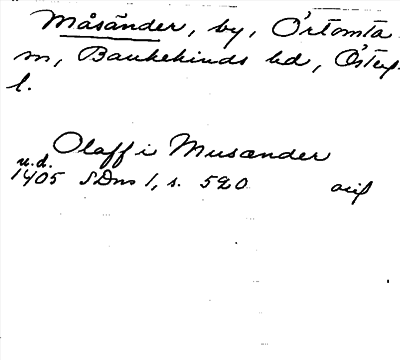 Måsänder, by, Örtomta
sn, Bankekinds hd, Österg.
l.
Olaff i Musander
u.d.
1405 SDns 1, s. 520 avs